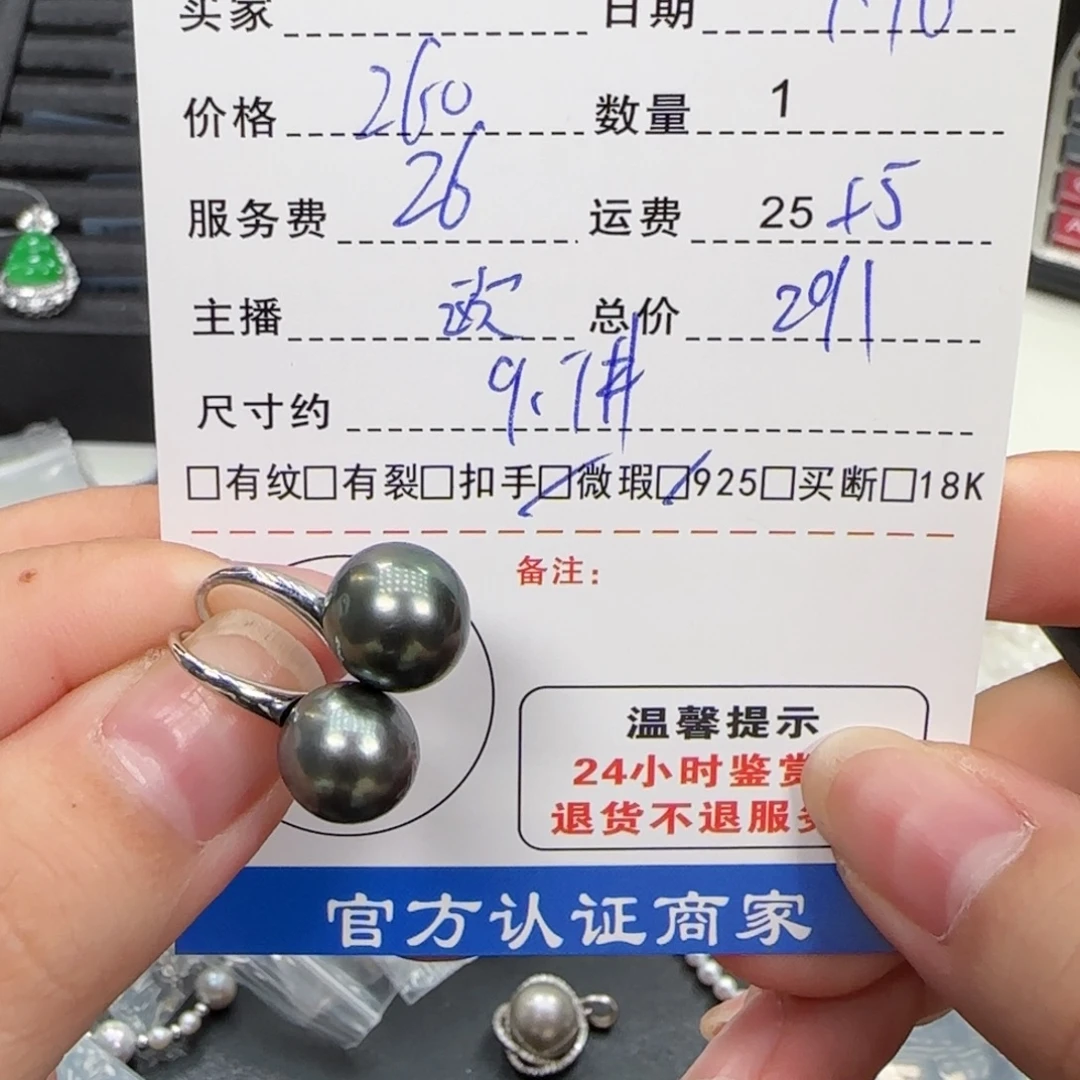 买家 日期
价格 260 数量 1
服务费 26 运费 25+5
主播 欧 总价 291
尺寸约 9.7#
□有纹□有裂□扣手□微瑕□925□买断□18K
备注：
温馨提示
24小时鉴赏
退货不退服务
官方认证商家